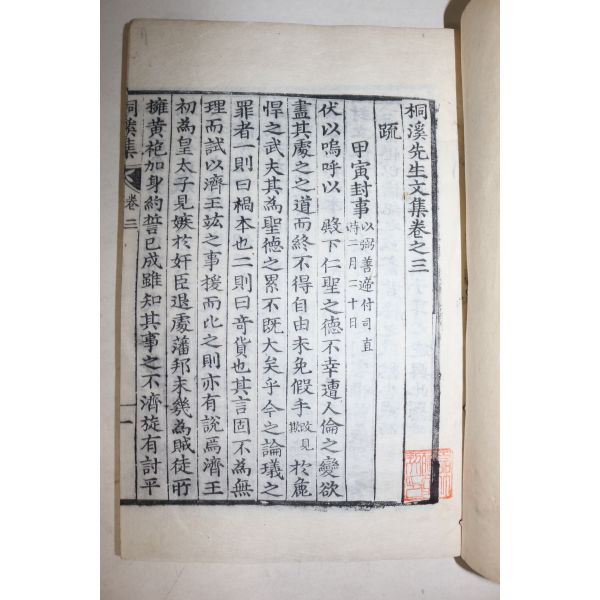 桐溪先生文集卷之三
疏
甲寅封事
以弼善遞付司直
時二月二十日
伏以嗚呼以 殿下仁聖之德不幸遭人倫之變欲
盡其處之之道而終不得自由未免假手 欺 改見 於麁
悍之武夫其爲聖德之累不既大矣乎今之論㼁之
罪者一則曰禍本也二則曰奇貨也其言固不爲無
理而試以濟王竑之事援而比之則亦有說焉濟王
初爲皇太子見嫉於奸臣退處藩邦末幾爲賊徒所
擁黃袍加身約誓已成雖知其事之不濟旋有討平
桐溪集 卷三 一